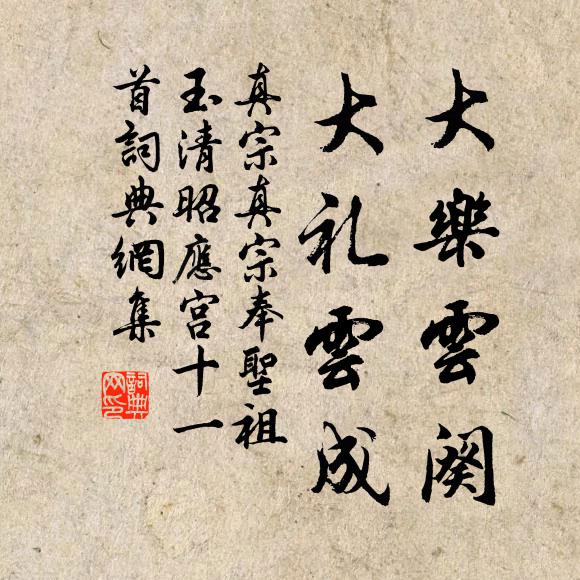 大樂雲闋
大礼雲成
真宗真宗奉聖祖
玉清昭應宮十一
首詞典網集
詞典
网印